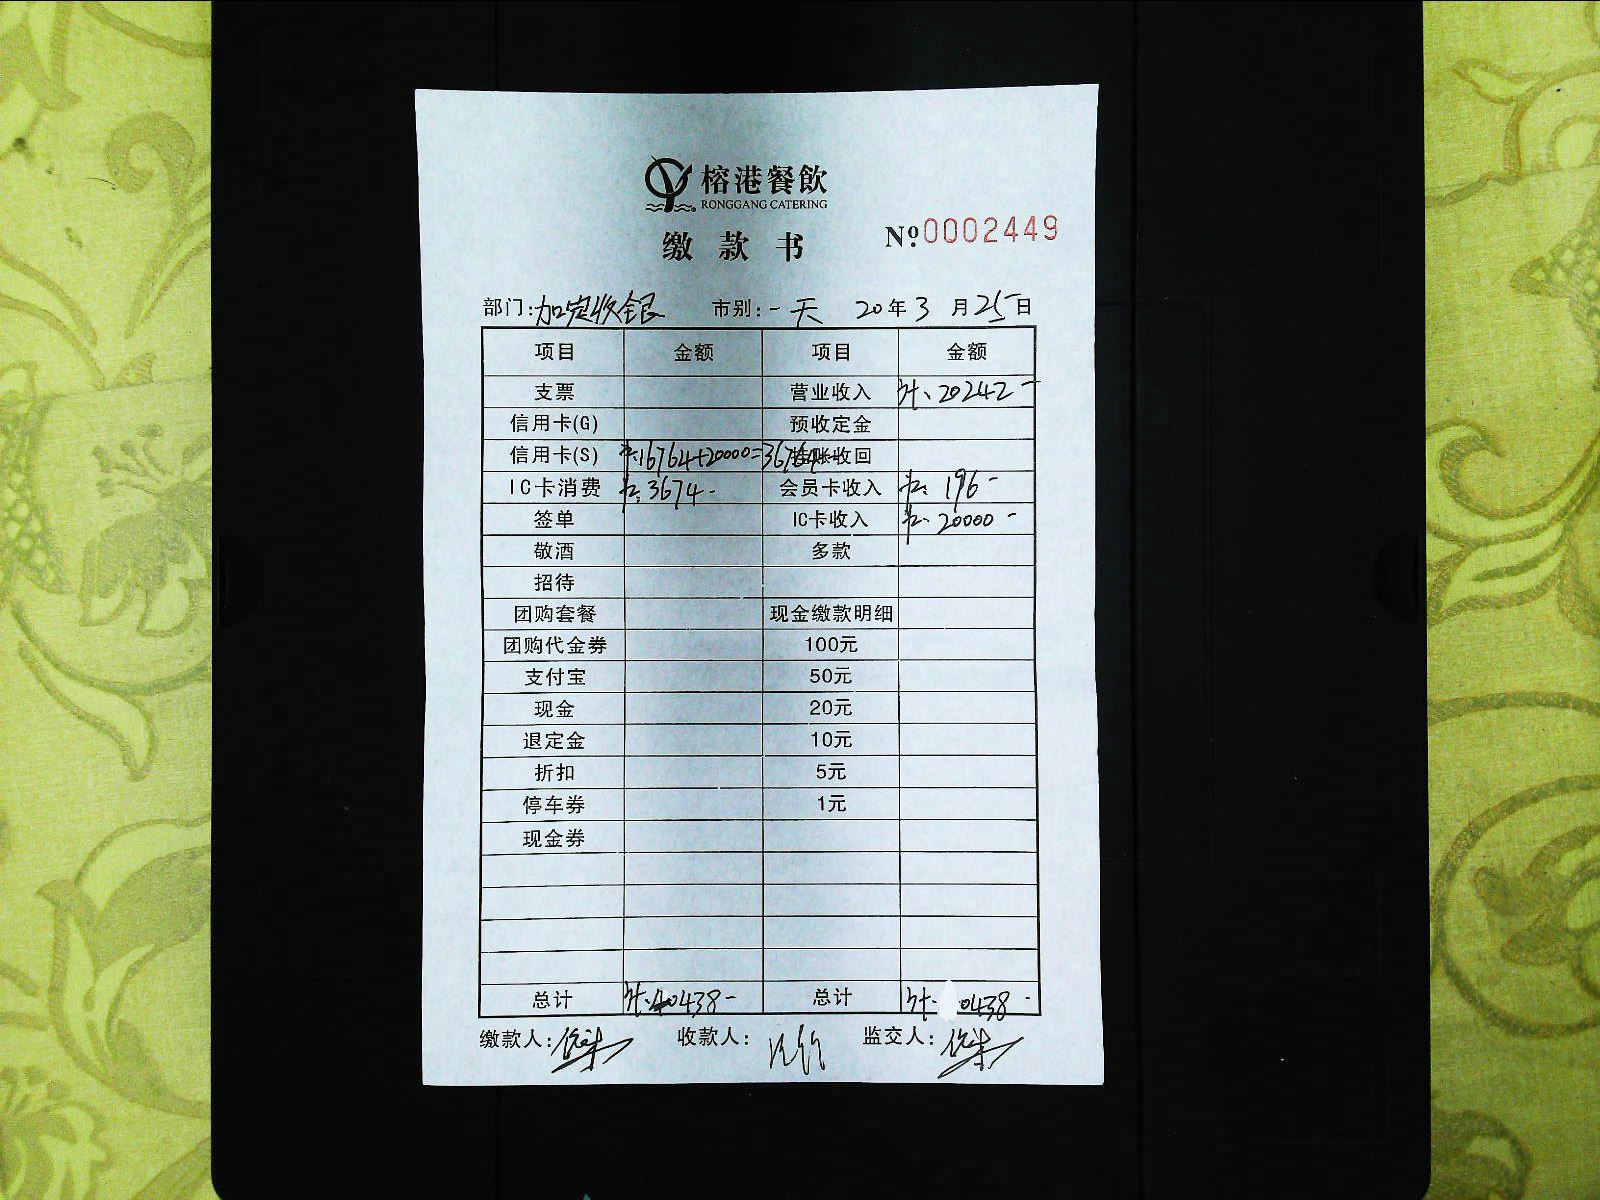 榕港餐飲
RONGGANG CATERING
缴款书 №0002449
部门:加定收银 市别:一天 20年3月25日
项目 金额 项目 金额
支票 营业收入 20242-
信用卡(G) 预收定金
信用卡(S) 16764+20000=36764 挂账收回
IC卡消费 3674- 会员卡收入 196-
签单 IC卡收入 20000-
敬酒 多款
招待
团购套餐 现金缴款明细
团购代金券 100元
支付宝 50元
现金 20元
退定金 10元
折扣 5元
停车券 1元
现金券
总计 40438- 总计 0438-
缴款人: 收款人: 监交人: